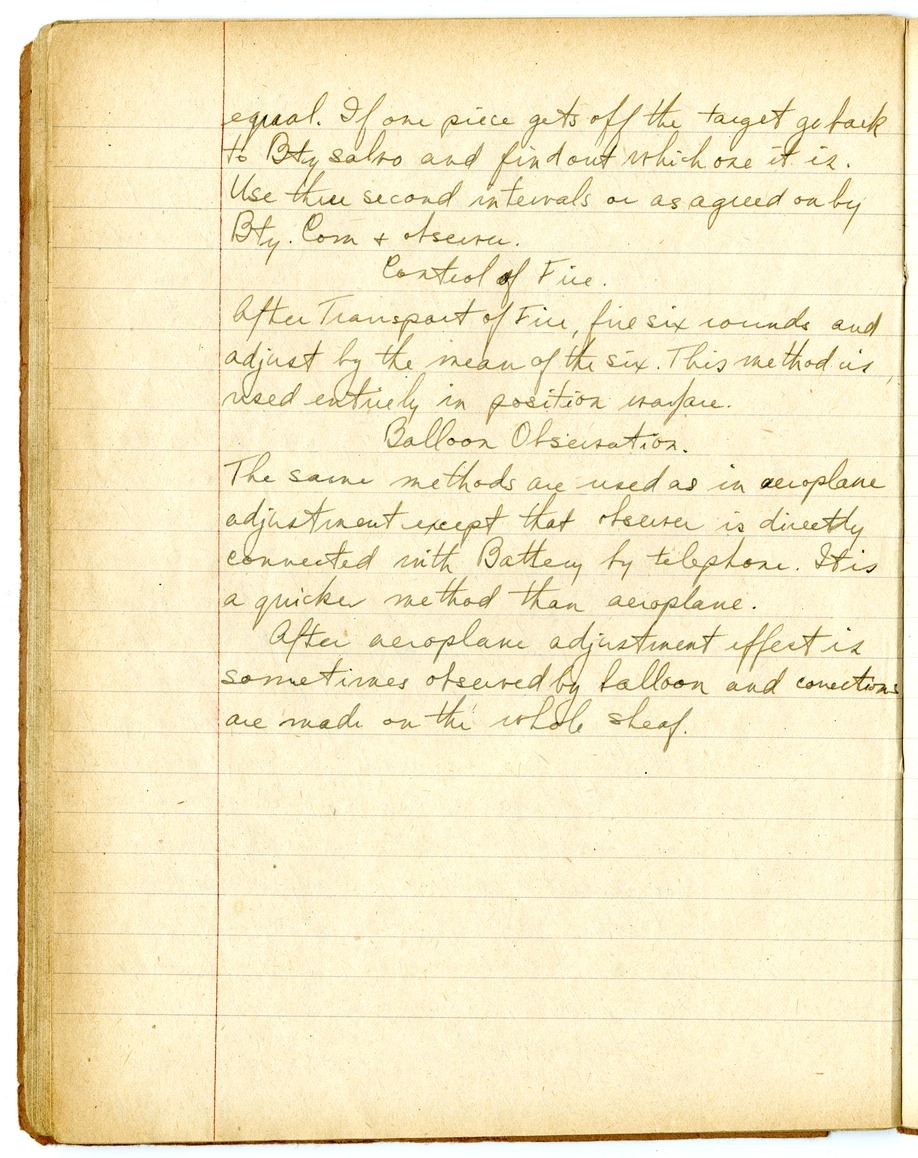 equal. If one piece gets off the target go back
to Bty salvo and find out which one it is.
Use three second intervals or as agreed on by
Bty. Com + observer.
Control of Fire.
After Transport of Fire, fire six rounds and
adjust by the mean of the six. This method is
used entirely in position warfare.
Balloon Observation.
The same methods are used as in aeroplane
adjustment except that observer is directly
connected with Battery by telephone. It is
a quicker method than aeroplane.
After aeroplane adjustment effect is
sometimes observed by balloon and corrections
are made on the whole sheaf.